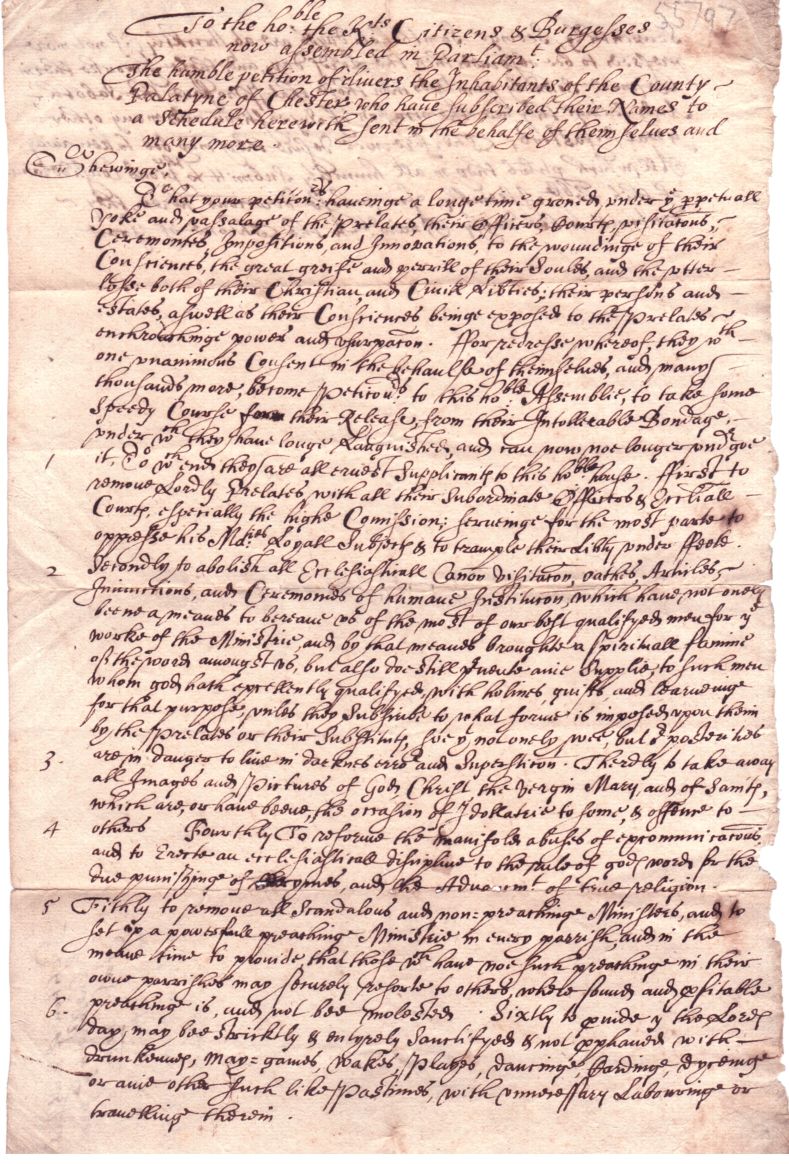 55797
To the ho:ble the Kts Citizens & Burgesses
now assembled in Parliamt:
The humble petition of divers the Inhabitants of the County
Palatyne of Chester who have subscribed their Names to
a schedule herewith sent in the behalfe of themselves and
many more.
Shewinge,
That your petitonrs: haveinge a longe time groned under ye ppetuall
yoke and vassalage of the Prelates, their Officers, Courts, visitatons,
Ceremonies, Impositions, and Innovations, to the woundinge of their
Consciences, the great greife and perrill of their Soules, and the utter
losse both of their Christian and Civill Libties; their persons and
estates, aswell as their Consciences beinge exposed to the Prelates
enchrochinge power and usurpacon. ffor redresse whereof, they wth
one unanimous Consent in the behaulfe of themselves, and many
thousands more, become Petitonrs to this hoble: Assemblie, to take some
speedy Course for their Release, from their Intollerable Bondage,
under wch they have longe Languished, and can now noe longer undrgoe
1 it, To wch end they are all ernest Supplicants to this hoble: house. ffirst to
remove Lordly Prelates with all their Subordinate Officers & Eccliall
Courts, especially the highe Comission; serveinge for the most parte to
oppresse his Maties: Loyall Subjects & to trample their Libty under ffeete.
2 Secondly to abolish all Ecclesiasticall Canon visitaton, oathes, Articles,
Iniunctions, and Ceremonies of humane Institucon, which have not onely
beene a meanes to bereave us of the most of our best qualifyed men for ye
worke of the Ministrie, and by that meanes broughte a spirituall famine
of the word amongst us, but also doe still pvente anie Supplie, to such men
whom god hath excellently qualifyed, with holines, guifts and learneinge
for that purpose, unles they Subscribe to what forme is imposed upon them
by the Prelates or their Substituts, soe yt not onely wee, but or posterities
3. are in danger to live in darknes error and Supersticon. Therdly to take away
all Images and Pictures of God, Christ the vergin Mary, and of Saints,
which are, or have beene, the occasion of Idollatrie to some, & offence to
4 others Fourthly To reforme the manifold abuses of excommunicatons,
and to Erecte an ecclesiasticall disipline to the rule of gods word for the
due punishinge of crymes, and the Advancmt of true religion.
5 Fithly to remove all Scandalous and non=preachinge Ministers, and to
set up a powerfull preachinge Ministrie in every parrish, and in the
meane time to provide that those wch have noe such preachinge in their
owne parrishes may securely resorte to others, where sound and pfitable
6. preachinge is, and not bee molested. Sixtly to pvide yt the Lords
day may bee strictly & entyrely Sanctifyed & not pphaned with
drunkennes, may=games, wakes, Playes, dancinge, Cardinge, dyceinge
or anie other such like Pastimes, with unnecessary Labouringe or
travelling therein.